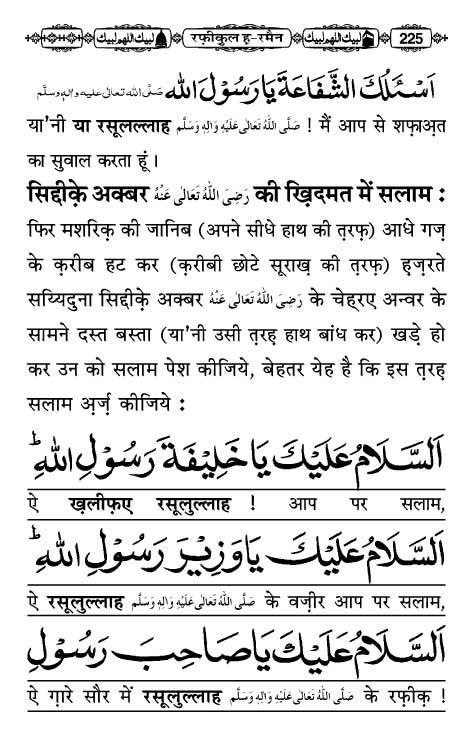 لبيك اللهم لبيك रफ़ीकुल ह-रमैन لبيك اللهم لبيك 225
اَسْئَلُكَ الشَّفَاعَةَ يَا رَسُوْلَ اللهِ صلَّى الله تعالى عليه واله وسلَّم
या’नी या रसूलल्लाह صَلَّى اللهُ تَعَالٰى عَلَيْهِ وَاٰلِهٖ وَسَلَّم ! मैं आप से शफ़ाअ़त
का सुवाल करता हूं ।
सिद्दीक़े अक्बर رَضِىَ اللهُ تَعَالٰى عَنْهُ की ख़िदमत में सलाम :
फिर मशरिक़ की जानिब (अपने सीधे हाथ की त़रफ़) आधे गज़
के क़रीब हट कर (क़रीबी छोटे सूराख़ की त़रफ़) ह़ज़रते
सय्यिदुना सिद्दीक़े अक्बर رَضِىَ اللهُ تَعَالٰى عَنْهُ के चेह्‌रए अन्वर के
सामने दस्त बस्ता (या’नी उसी त़रह़ हाथ बांध कर) खड़े हो
कर उन को सलाम पेश कीजिये, बेहतर येह है कि इस त़रह़
सलाम अ़र्ज़ कीजिये :
اَلسَّلَامُ عَلَيْكَ يَا خَلِيْفَةَ رَسُوْلِ اللهِ ؕ
ऐ ख़लीफ़ए रसूलुल्लाह ! आप पर सलाम,
اَلسَّلَامُ عَلَيْكَ يَا وَزِيْرَ رَسُوْلِ اللهِ ؕ
ऐ रसूलुल्लाह صَلَّى اللهُ تَعَالٰى عَلَيْهِ وَاٰلِهٖ وَسَلَّم के वज़ीर आप पर सलाम,
اَلسَّلَامُ عَلَيْكَ يَا صَاحِبَ رَسُوْلِ
ऐ ग़ारे सौर में रसूलुल्लाह صَلَّى اللهُ تَعَالٰى عَلَيْهِ وَاٰلِهٖ وَسَلَّم के रफ़ीक़ !